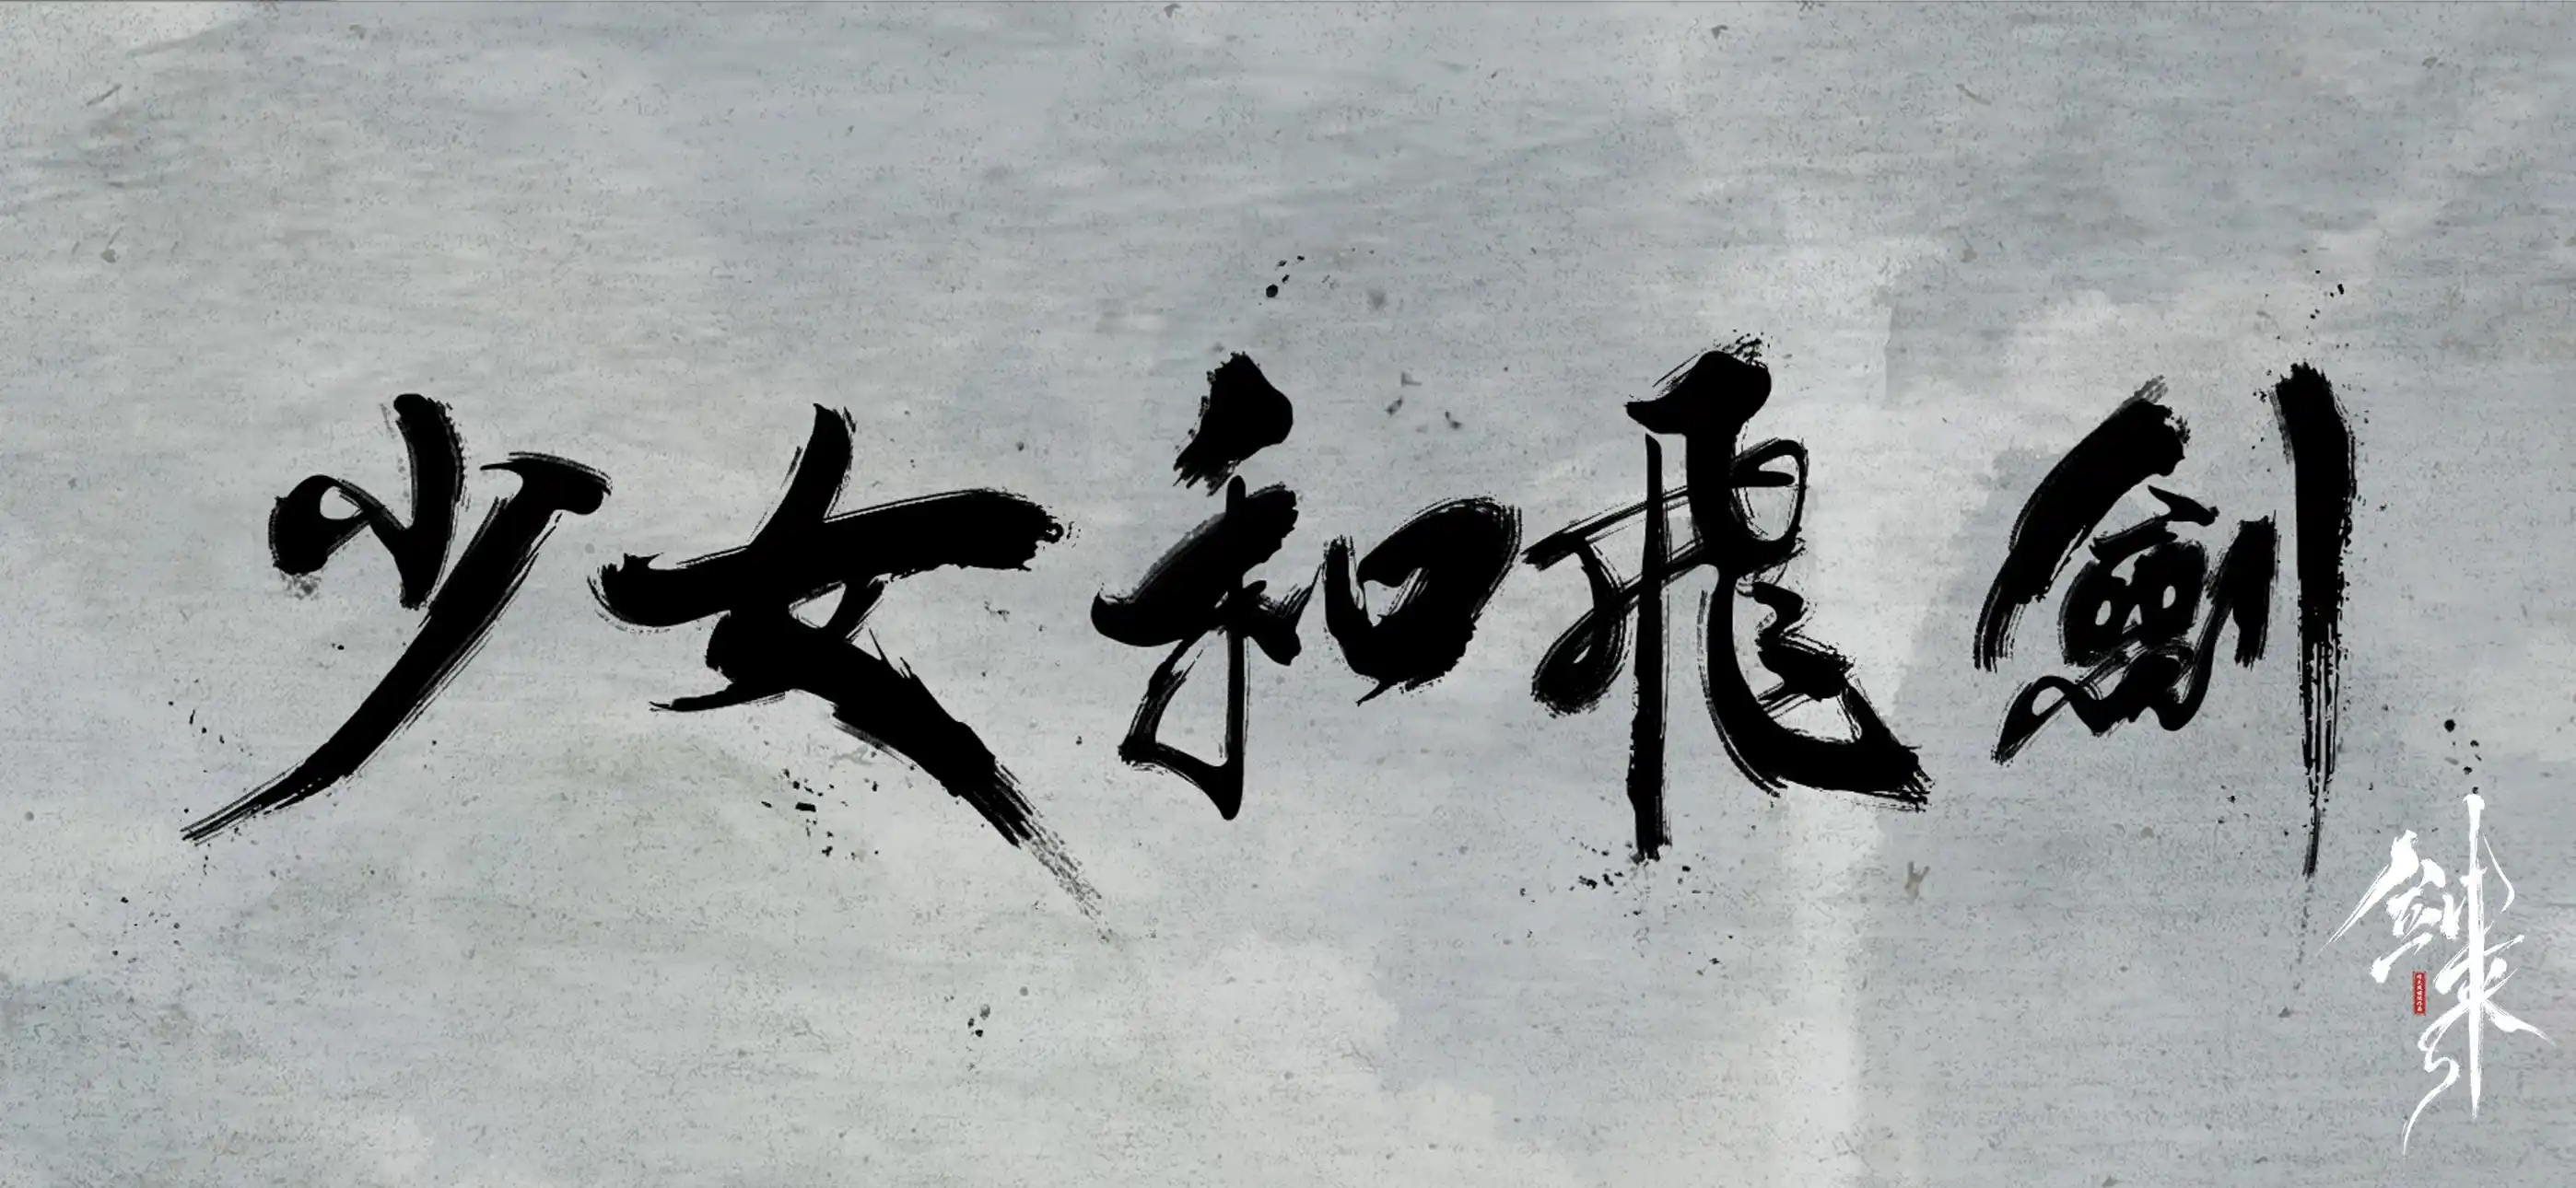 少女和飛劍
劍來引